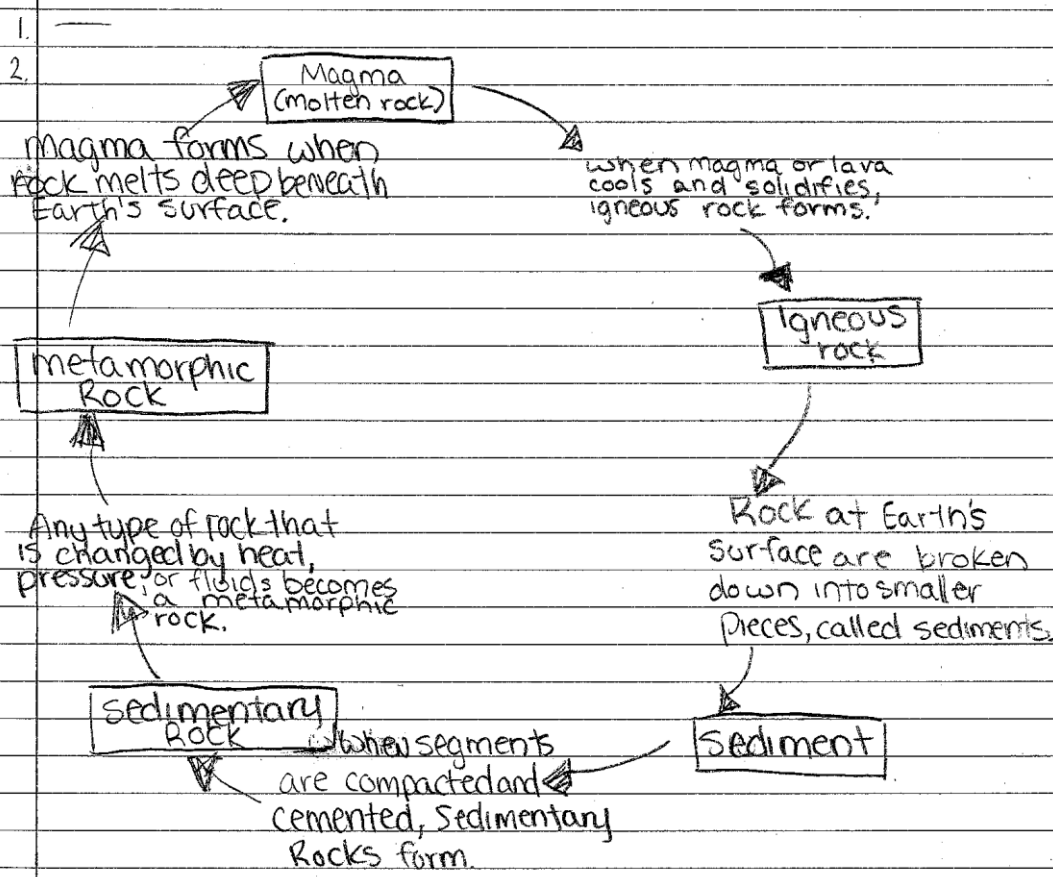 1. —
2.
Magma
(molten rock)
when magma or lava
cools and solidifies,
igneous rock forms.
Igneous
rock
Rock at Earth's
surface are broken
down into smaller
pieces, called sediments.
Sediment
when segments
are compacted and
cemented, Sedimentary
Rocks form.
Sedimentary
Rock
Any type of rock that
is changed by heat,
pressure, or fluids becomes
a metamorphic
rock.
metamorphic
Rock
Magma forms when
rock melts deep beneath
Earth's surface.